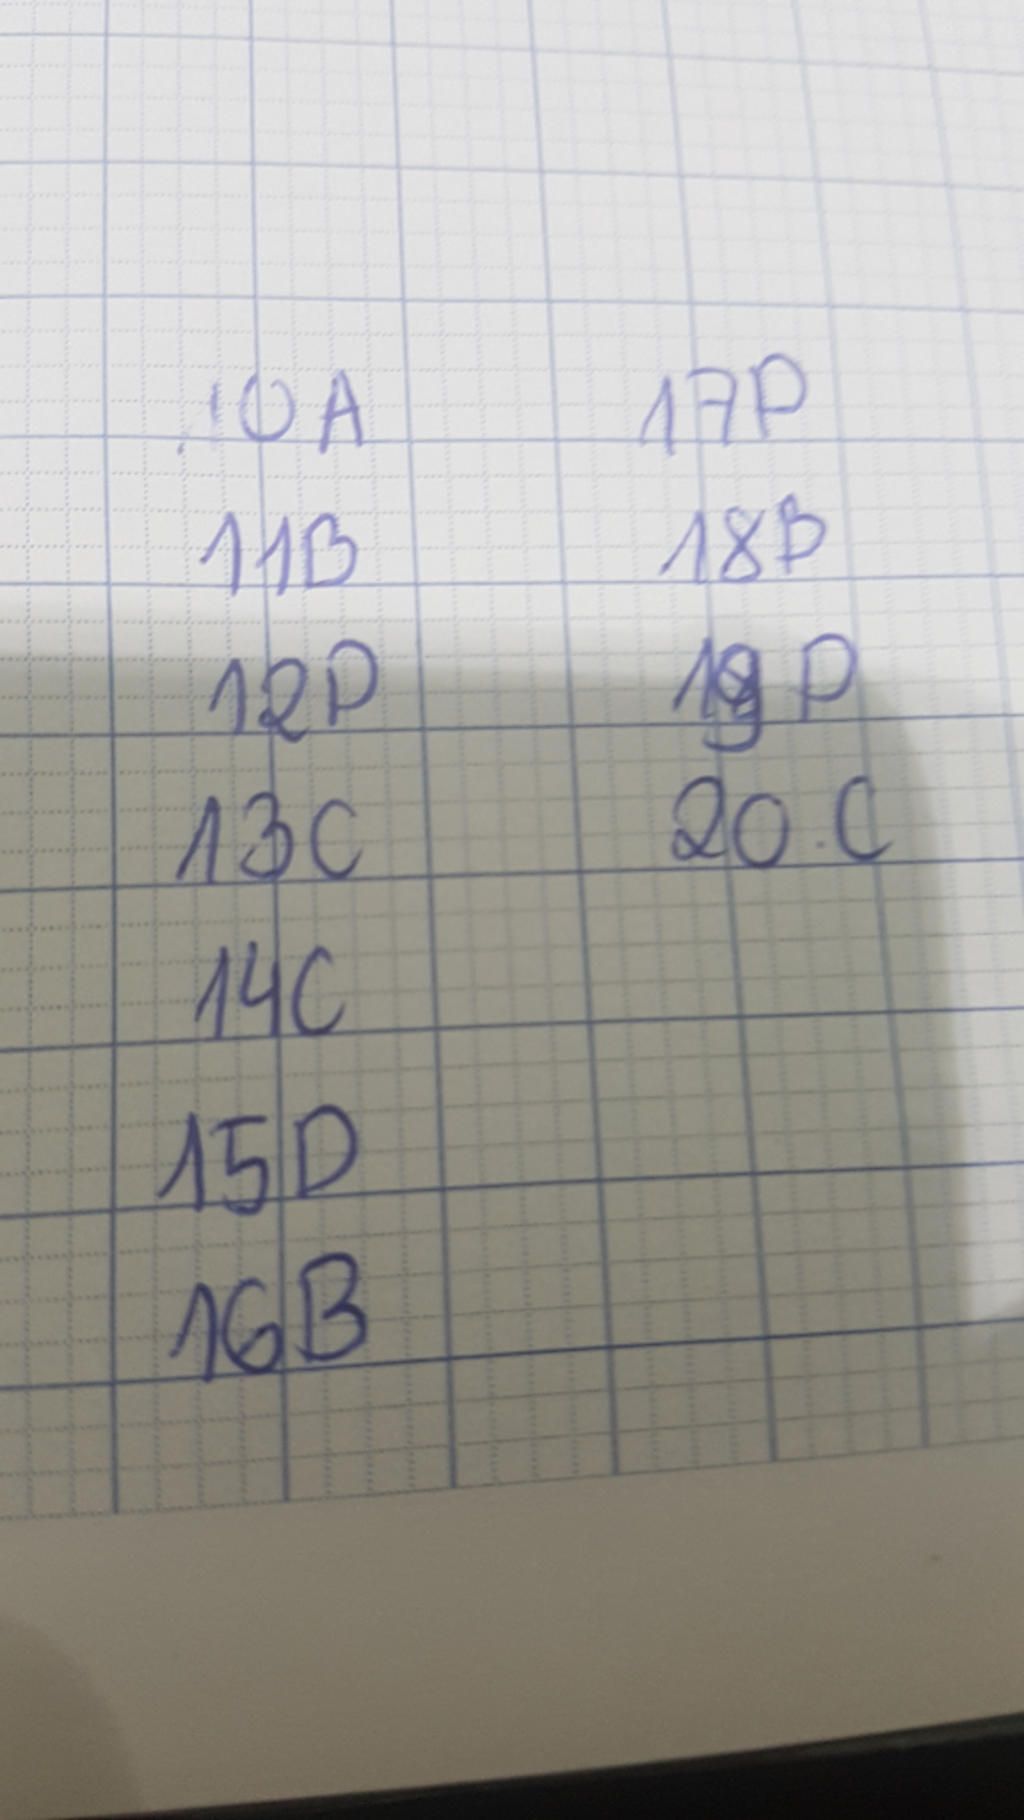 10 A
11B
12D
13C
14C
15D
16B
17D
18B
19 D
20.C